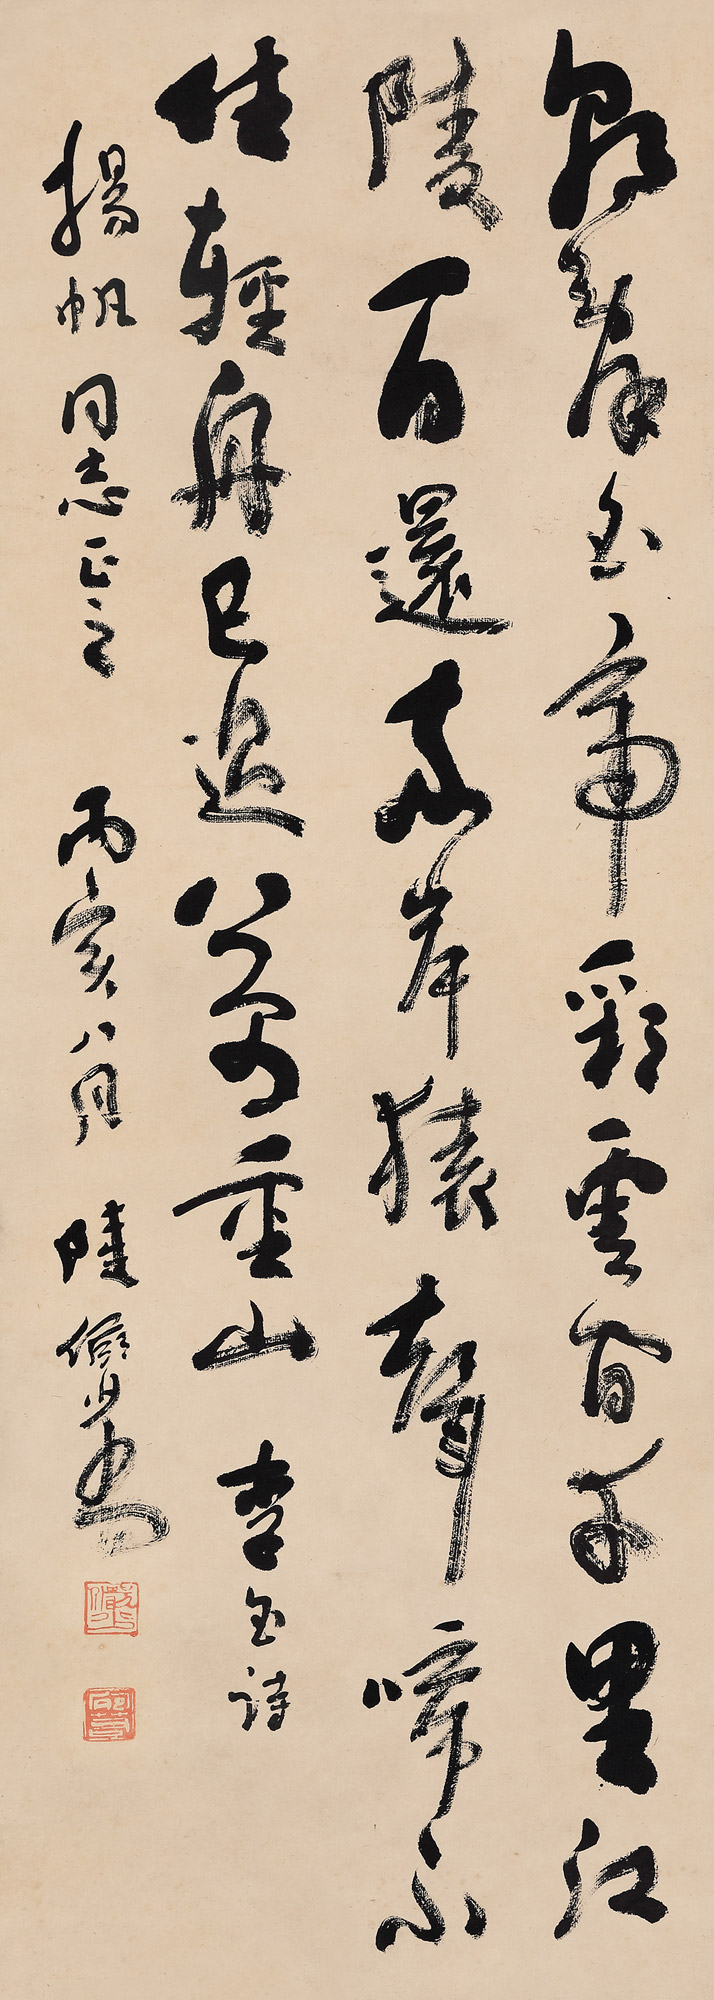 朝辭白帝彩雲間千里江
陵一日還兩岸猿聲啼不
住輕舟已過萬重山 李白詩
揚帆同志正之 丙寅八月 陸儼少書